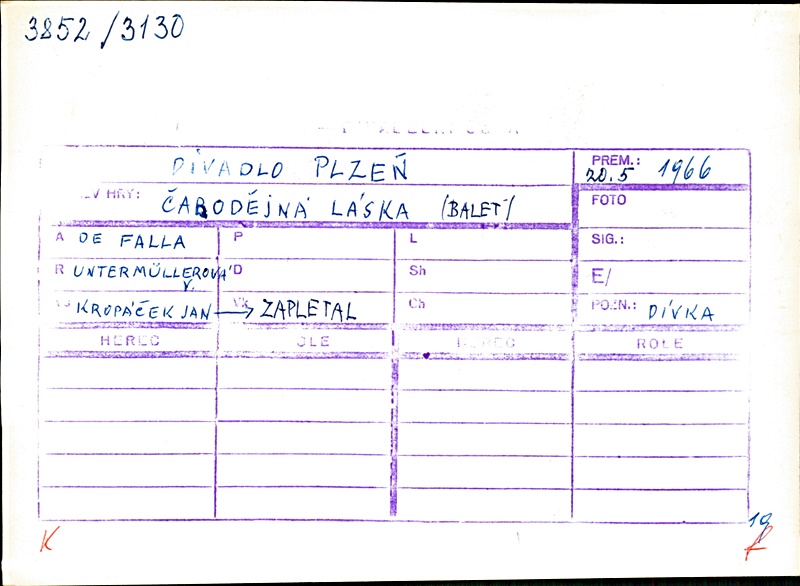 3852/3130
DIVADLO PLZEŇ
PREM.: 20.5 1966
HRY: ČARODĚJNÁ LÁSKA /BALET/
FOTO
A DE FALLA P L SIG.:
R UNTERMÜLLEROVÁ V. D Sh E/
KROPÁČEK JAN → ZAPLETAL Ch POZN.: DÍVKA
HEREC ROLE HEREC ROLE
19
K